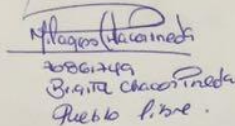 Milagros Chacon Pineda
70861749
Brigitte Chacon Pineda
Pueblo libre.